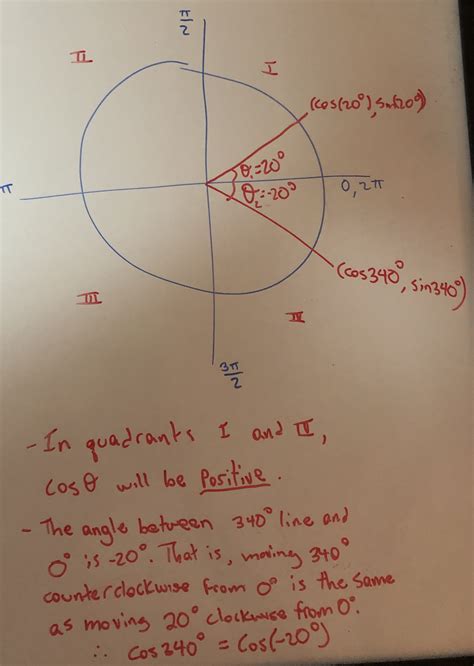 π/2
II
I
(cos(20°), sin(20°)
θ₁=20°
π
0, 2π
θ₂=-20°
(cos340°, sin340°)
III
IV
3π/2
- In quadrants I and IV,
cosθ will be Positive.
- The angle between 340° line and
0° is -20°. That is, moving 340°
counterclockwise from 0° is the same
as moving 20° clockwise from 0°.
∴ cos340° = cos(-20°)